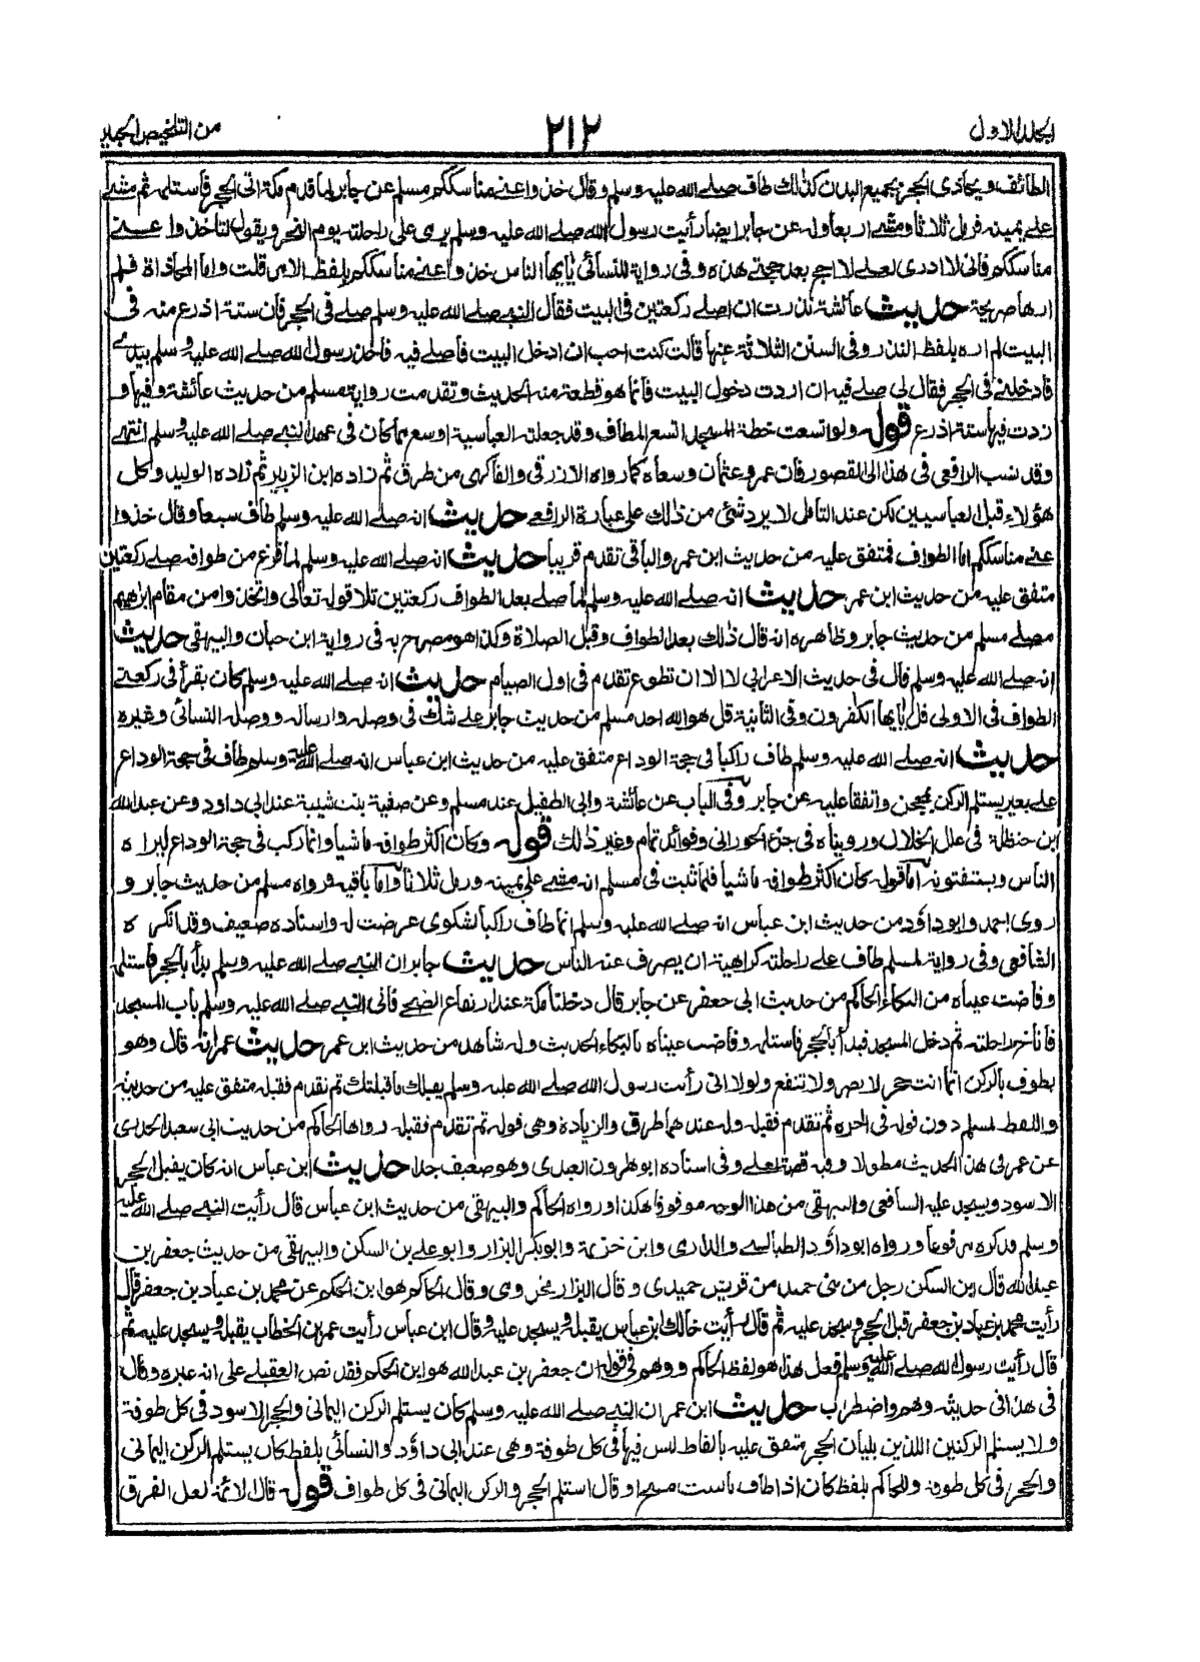 المجلد الاول ٢١٢ من التلخيص الحبير
الطائف ويحاذى الحجر بجميع البدن كذلك طاف صلى الله عليه وسلم وقال خذوا عني مناسككم مسلم عن جابر لما قدم مكة اتى الحجر فاستلمه ثم مشى
على يمينه فرمل ثلاثا ومشى اربعا وله عن جابر ايضا رأيت رسول الله صلى الله عليه وسلم يرمى على راحلته يوم النحر ويقول لتأخذوا عنى
مناسككم فانى لا ادرى لعلى لا احج بعد حجتى هذه وفى رواية للنسائى يا ايها الناس خذوا عنى مناسككم بلفظ الامر قلت واما المحاذاة فلم
ارها صريحة حديث عائشة نذرت ان اصلى ركعتين فى البيت فقال النبى صلى الله عليه وسلم صلى فى الحجر فان ستة اذرع منه فى
البيت لم اره بلفظ النذر وفى السنن الثلاثة عنها قالت كنت احب ان ادخل البيت فاصلى فيه فاخذ رسول الله صلى الله عليه وسلم بيدى
فادخلنى فى الحجر فقال لى صلى فيه ان اردت دخول البيت فانما هو قطعة منه الحديث وتقدمت رواية مسلم من حديث عائشة وفيها و
زدت فيها ستة اذرع قوله ولو اتسعت خطة المسجد اتسع المطاف وقد جعلته العباسية اوسع مما كان فى عهد النبى صلى الله عليه وسلم انتهى
وقد نسب الرافعى فى هذا الى القصور فان عمر وعثمان وسعاه كما رواه الازرقى والفاكهى من طرق ثم زاده ابن الزبير ثم زاده الوليد وكل
هؤلاء قبل العباسيين لكن عند التأمل لا يرد شئ من ذلك على عبارة الرافعى حديث انه صلى الله عليه وسلم طاف سبعا وقال خذوا
عنى مناسككم اما الطواف فمتفق عليه من حديث ابن عمر والباقى تقدم قريبا حديث انه صلى الله عليه وسلم لما فرغ من طوافه صلى ركعتين
متفق عليه من حديث ابن عمر حديث انه صلى الله عليه وسلم لما صلى بعد الطواف ركعتين تلا قوله تعالى واتخذوا من مقام ابراهيم
مصلى مسلم من حديث جابر وظاهره انه قال ذلك بعد الطواف وقبل الصلاة وكذا هو مصرح به فى رواية ابن حبان والبيهقى حديث
انه صلى الله عليه وسلم قال فى حديث الاعرابى لا الا ان تطوع تقدم فى اول الصيام حديث انه صلى الله عليه وسلم كان يقرأ فى ركعتى
الطواف فى الاولى قل يا ايها الكفرون وفى الثانية قل هو الله احد مسلم من حديث جابر على شك فى وصله وارساله ووصله النسائى وغيره
حديث انه صلى الله عليه وسلم طاف راكبا فى حجة الوداع متفق عليه من حديث ابن عباس انه صلى الله عليه وسلم طاف فى حجة الوداع
على بعير يستلم الركن بمحجن واتفقا عليه عن جابر وفى الباب عن عائشة وابى الطفيل عند مسلم وعن صفية بنت شيبة عند ابى داود وعن عبد الله
ابن حنظلة فى علل الخلال ورويناه فى جزء الحورانى وفوائد تمام وغير ذلك قوله وكان اكثر طوافه ماشيا وانما ركب فى حجة الوداع ليراه
الناس ويستفتونه اما قوله كان اكثر طوافه ماشيا فلما ثبت فى مسلم انه مشى على يمينه ورمل ثلاثا واما باقيه فرواه مسلم من حديث جابر و
روى احمد وابو داؤد من حديث ابن عباس انه صلى الله عليه وسلم انما طاف راكبا لشكوى عرضت له واسناده ضعيف وقد انكره
الشافعى وفى رواية لمسلم طاف على راحلته كراهية ان يصرف عنه الناس حديث جابر ان النبى صلى الله عليه وسلم بدأ بالحجر فاستلمه
وفاضت عيناه من البكاء الحاكم من حديث ابى جعفر عن جابر قال دخلنا مكة عند ارتفاع الضحى فاتى النبى صلى الله عليه وسلم باب المسجد
فاناخ راحلته ثم دخل المسجد فبدأ بالحجر فاستلمه وفاضت عيناه بالبكاء الحديث وله شاهد من حديث ابن عمر حديث عمر انه قال وهو
يطوف بالركن انما انت حجر لا يضر ولا تنفع ولولا انى رأيت رسول الله صلى الله عليه وسلم يقبلك ما قبلتك ثم تقدم فقبله متفق عليه من حديثه
واللفظ لمسلم دون قوله فى اخره ثم تقدم فقبله وله عندهما طرق والزيادة وهى قوله ثم تقدم فقبله رواها الحاكم من حديث ابى سعيد الخدرى
عن عمر فى هذا الحديث مطولا وفيه قصة لعلى وفى اسناده ابو هرون العبدى وهو ضعيف جدا حديث ابن عباس انه كان يقبل الحجر
الاسود ويسجد عليه الشافعى والبيهقى من هذا الوجه موقوفا هكذا ورواه الحاكم والبيهقى من حديث ابن عباس قال رأيت النبى صلى الله عليه
وسلم فذكره مرفوعا ورواه ابو داؤد الطيالسى والدارمى وابن خزيمة وابو بكر البزار وابو على بن السكن والبيهقى من حديث جعفر بن
عبد الله قال ابن السكن رجل من بنى حميد من قريش حميدى وقال البزار مخزومى وقال الحاكم هو ابن الحكم عن محمد بن عباد بن جعفر قال
رأيت محمد بن عباد بن جعفر قبل الحجر وسجد عليه ثم قال رأيت خالك ابن عباس يقبله ويسجد عليه وقال ابن عباس رأيت عمر بن الخطاب يقبله ويسجد عليه ثم
قال رأيت رسول الله صلى الله عليه وسلم فعل هذا هو لفظ الحاكم ووهم فى قوله ان جعفر بن عبد الله هو ابن الحكم فقد نص العقيلى على انه غيره وقال
فى هذا فى حديثه وهم واضطراب حديث ابن عمر ان النبى صلى الله عليه وسلم كان يستلم الركن اليمانى والحجر الاسود فى كل طوفة
ولا يستلم الركنين اللذين يليان الحجر متفق عليه بالفاظ ليس فيها فى كل طوفة وهى عند ابى داؤد والنسائى بلفظ كان يستلم الركن اليمانى
والحجر فى كل طوفة وللحاكم بلفظ كان اذا طاف بالبيت مسح او قال استلم الحجر والركن اليمانى فى كل طواف قوله قال الائمة لعل الفرق